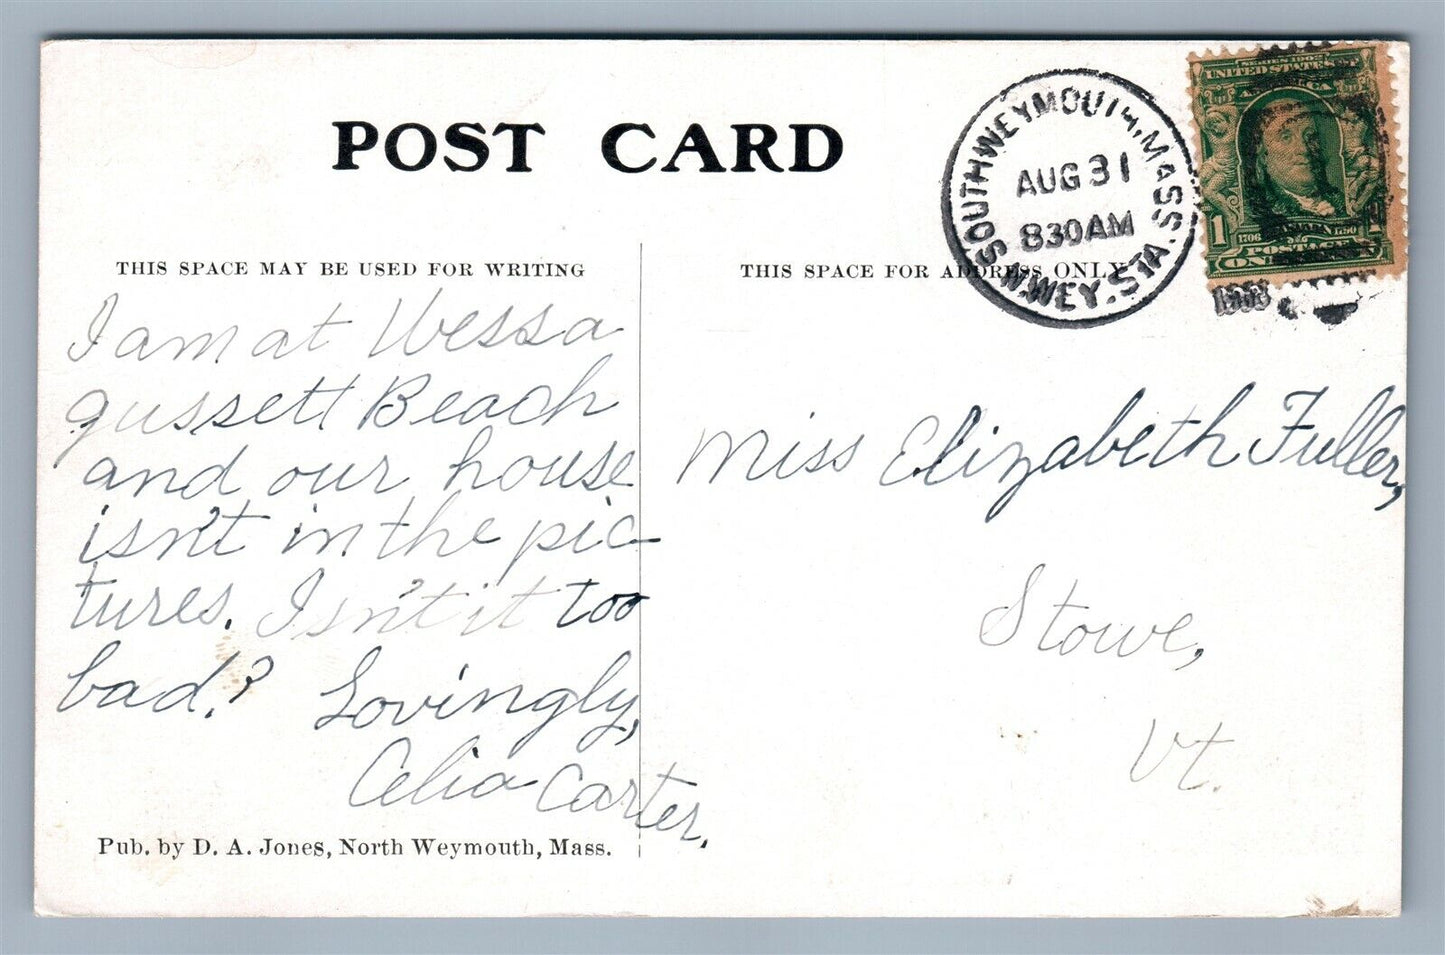 POST CARD
SOUTH WEYMOUTH, MASS.
N. WEY. STA.
AUG 31
830AM
1908
SERIES 1902
UNITED STATES OF
AMERICA
1
1706
FRANKLIN
1790
1
POSTAGE
ONE
THIS SPACE MAY BE USED FOR WRITING
THIS SPACE FOR ADDRESS ONLY
I am at Wessa
gussett Beach
and our house
isn't in the pic-
tures. Isn't it too
bad.?
Lovingly,
Celia Carter.
Miss Elizabeth Fuller,
Stowe,
Vt.
Pub. by D. A. Jones, North Weymouth, Mass.